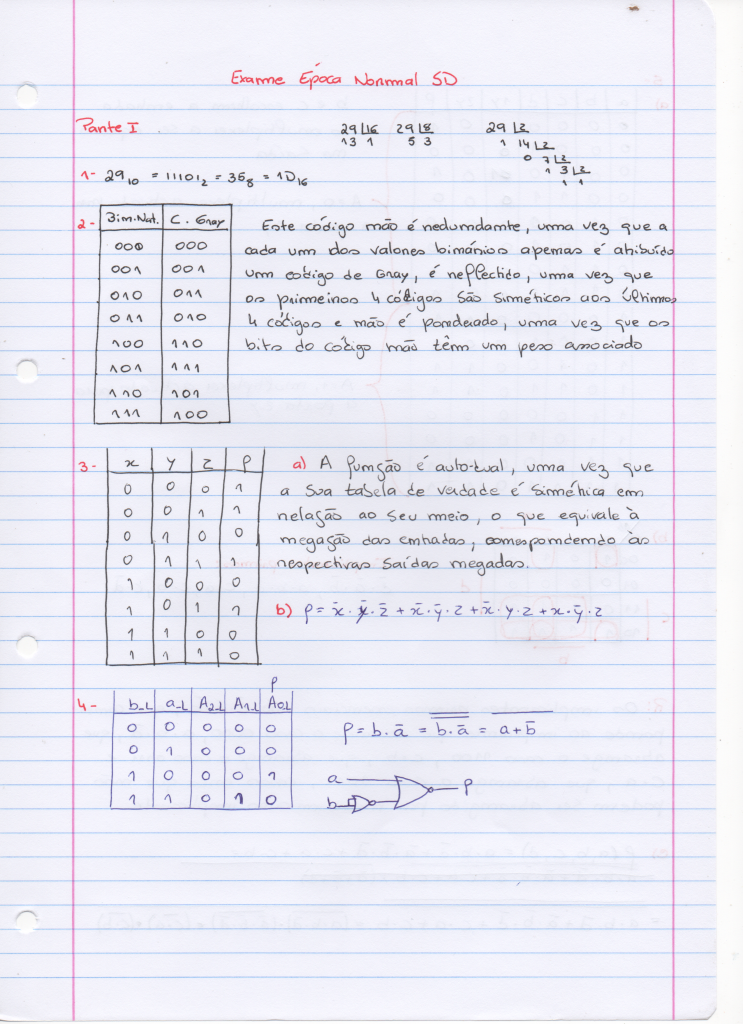 Exame Época Normal SD
Parte I
29 16 29 8 29 2
13 1 5 3 1 14 2
0 7 2
1 3 2
1 1
1- 29₁₀ = 11101₂ = 35₈ = 1D₁₆
2-
Bin.Nat. C. Gray
000 000
001 001
010 011
011 010
100 110
101 111
110 101
111 100
Este código não é redundante, uma vez que a
cada um dos valores binários apenas é atribuído
um código de Gray, é reflectido, uma vez que
os primeiros 4 códigos são simétricos aos últimos
4 códigos e não é ponderado, uma vez que os
bits do código não têm um peso associado
3-
x y z f
0 0 0 1
0 0 1 1
0 1 0 0
0 1 1 1
1 0 0 0
1 0 1 1
1 1 0 0
1 1 1 0
a) A função é auto-dual, uma vez que
a sua tabela de verdade é simétrica em
relação ao seu meio, o que equivale à
negação das entradas, correspondendo às
respectivas saídas negadas.
b) f = x̄ · ȳ · z̄ + x̄ · ȳ · z + x̄ · y · z + x · ȳ · z
4-
f
b_L a_L A2_L A1_L A0_L
0 0 0 0 0
0 1 0 0 0
1 0 0 0 1
1 1 0 1 0
f = b · ā = b · ā = a + b̄
a
b
f